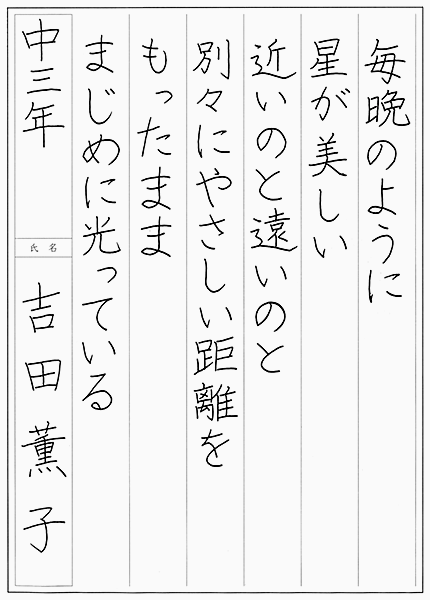 毎晩のように
星が美しい
近いのと遠いのと
別々にやさしい距離を
もったまま
まじめに光っている
中三年
氏名
吉田薫子